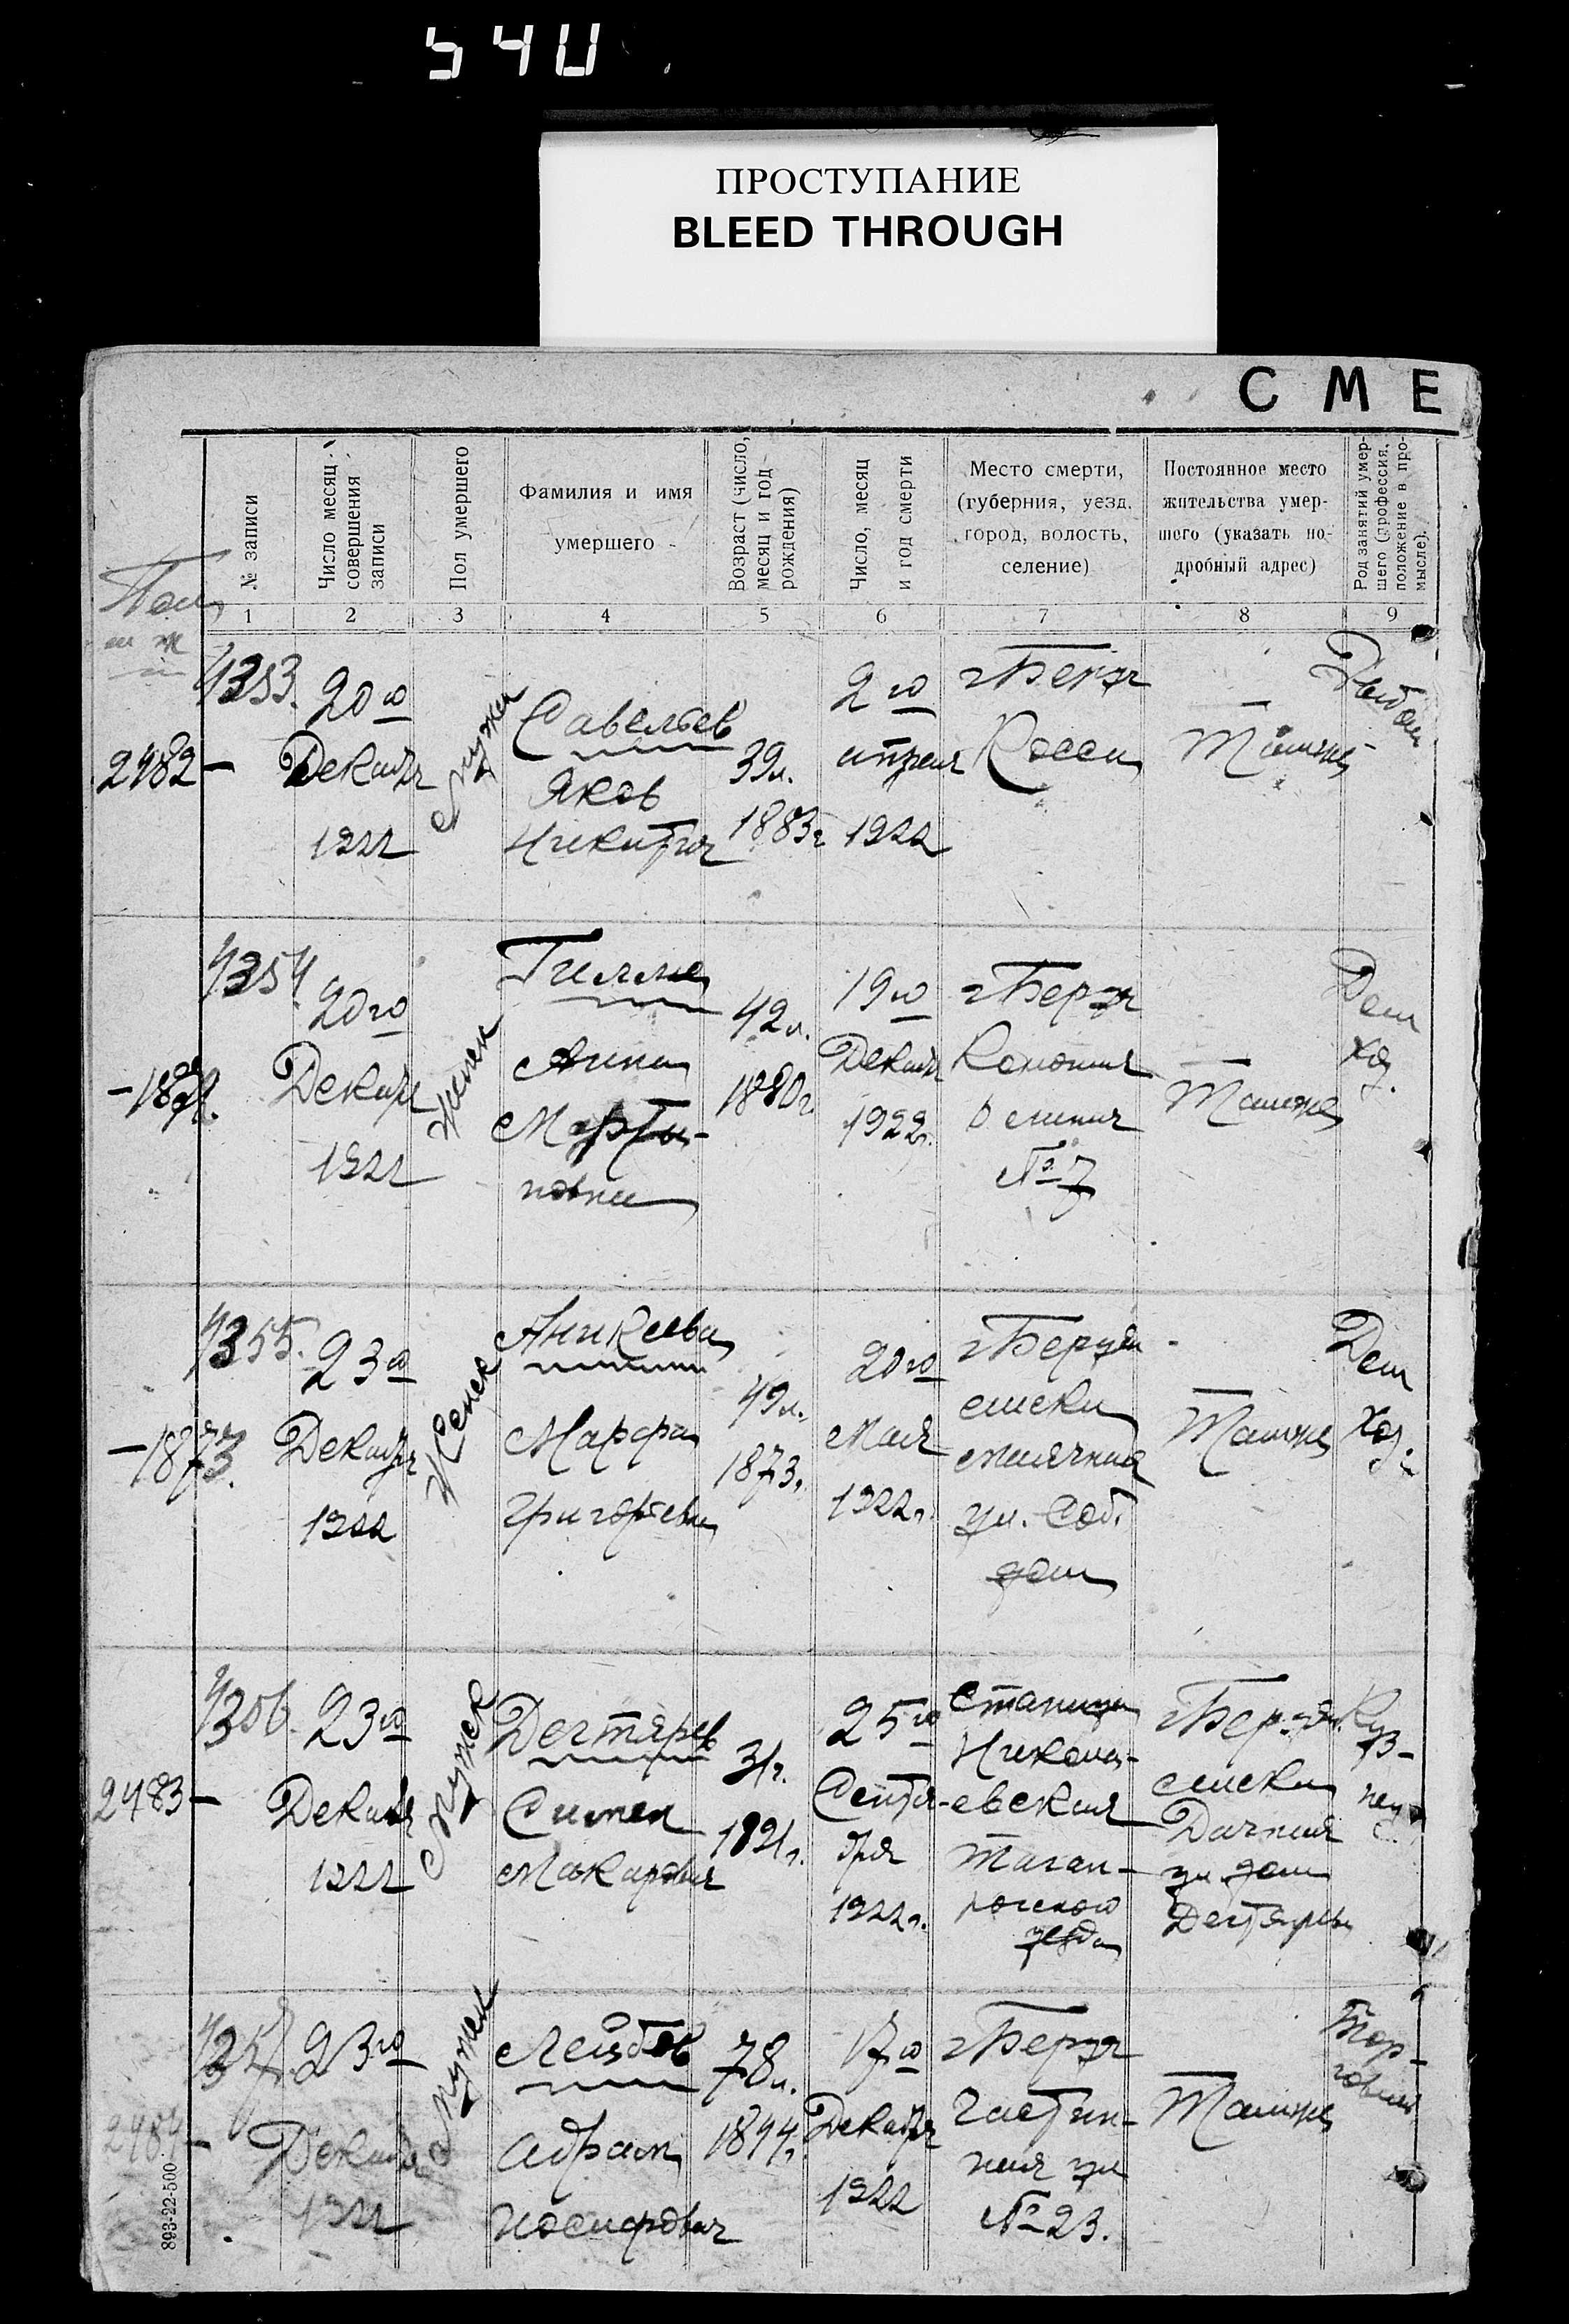 540
ПРОСТУПАНИЕ
BLEED THROUGH
СМЕ
№ записи
Число месяц
совершения
записи
Пол умершего
Фамилия и имя
умершего
Возраст (число,
месяц и год
рождения)
Число, месяц
и год смерти
Место смерти,
(губерния, уезд,
город, волость,
селение)
Постоянное место
жительства умер-
шего (указать по-
дробный адрес)
Род занятий умер-
шего (профессия,
положение в про-
мысле).
1 2 3 4 5 6 7 8 9
4353.
2482 —
20го
Декабря
1922
Мужск
Савельев
Яков
Никитич
39л.
1883г
2го
апреля
1922
г Бердян
Косса
Там же
Рыбак
4354
20го
Декабря
1922
Женск
Гилля
Анна
Марты-
новна
42л.
1880г.
19го
Декабря
1922г.
г Бердян
Колония
№ 7
Там же
Дом
хоз.
4355.
— 1873.
23го
Декабря
1922
Женск
Аникеева
Марфа
Григорьевна
49л.
1873г.
20го
Мая
1922г.
г Бердян
слиски
ул. Соб.
дом
Там же
Дом
хоз.
4356.
2483 —
23го
Декабря
1922
Мужск
Дегтярев
Симен
Макарович
31г.
1891г.
25го
Сентя-
бря
1922г.
Станица
Никола-
евская
Таган-
рогского
уезда
г Бердян.
слиски
Дачная
ул. дом
Дегтярева
Куз-
нец
4357.
2484 —
23го
Декабря
1922
Мужск
Лейбов
Абрам
Иосифович
78л.
1844г.
17го
Декабря
1922
г Бердян
Гастин-
ная ул
№ 23.
Там же
Тор-
говля
893-22-500